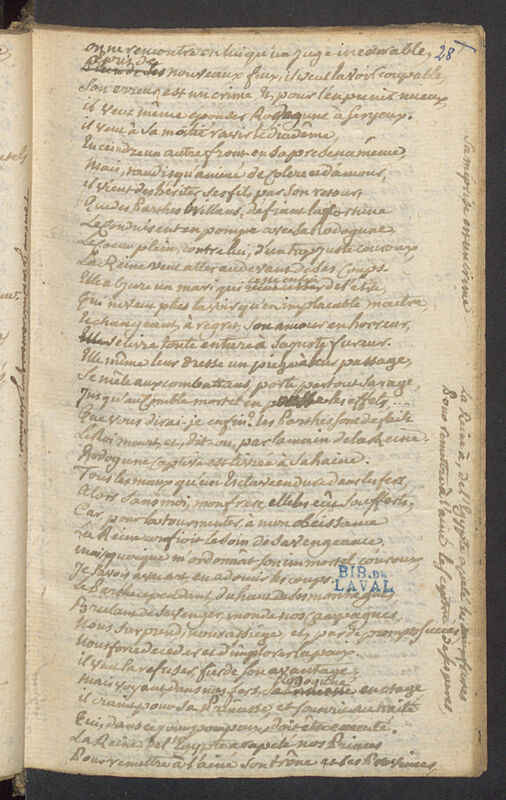 on ne rencontre en lui qu'un juge inexorable,
28
Epris de
Plein de ses nouveaux feux, il veut la voir coupable,
Son erreur est un crime & pour l'en punir mieux,
il veut même épouser Rodogune à ses yeux.
il veut à sa moitié ravir le diadême,
En ceindre un autre front en sa présence même,
Mais, tandis qu'animé de colere et d'amour,
il vient desheriter ses fils par son retour,
Que des Parthes brillans, defiant la fortune
Le conduisent en pompe avec sa Rodogune
Le coeur plein, contre lui, d'un trop juste couroux,
La Reine veut aller au devant de ses coups.
Elle abjure un mari qui cesse de l'être,
Qui ne veut plus la voir qu'en implacable maitre,
Et changeant, à regret, son amour en horreur,
Elle se livre toute entiere à sa juste fureur.
Elle même leur dresse un piege à leur passage,
Se mêle aux combattans, porte partout sa rage,
Jusqu'au comble mortel en les effets,
Que vous dirai-je enfin? les Parthes sont defaits
Le Roi meurt, et, dit-on, par la main de la Reine.
Rodogune captive est livrée à sa haine.
Tous les maux qu'un Esclave endure dans les fers,
Alors sans moi, mon frere, elle les eût soufferts,
Car, pour la tourmenter, à mon obeissance
La Reine confioit le soin de sa vengeance.
mais, quoique m'ordonnât son immortel couroux
Je savois avec art en adoucir les coups.
Le Parthe cependant, du haut de ses montagnes,
Brulant de se venger, inonde nos campagnes,
Nous surprend, nous assiege, et, par de prompts succès,
Nous force de ceder et d'implorer la paix.
il veut la refuser, fier de son avantage,
Rodogune
mais voyant dans nos fers la Princesse en otage
il craint pour sa Princesse, et souscrit au traité
Qui, dans ce jour pompeux, doit être executé.
La Reine de l'Egypte a rapelé nos Princes
Pour remettre à l'ainé son trône et les Provinces,
BIB. DE
LAVAL
Sa méprise est un crime
La Reine, de l'Egypte a rapelé
Pour remettre à l'ainé le sceptre de ses peres